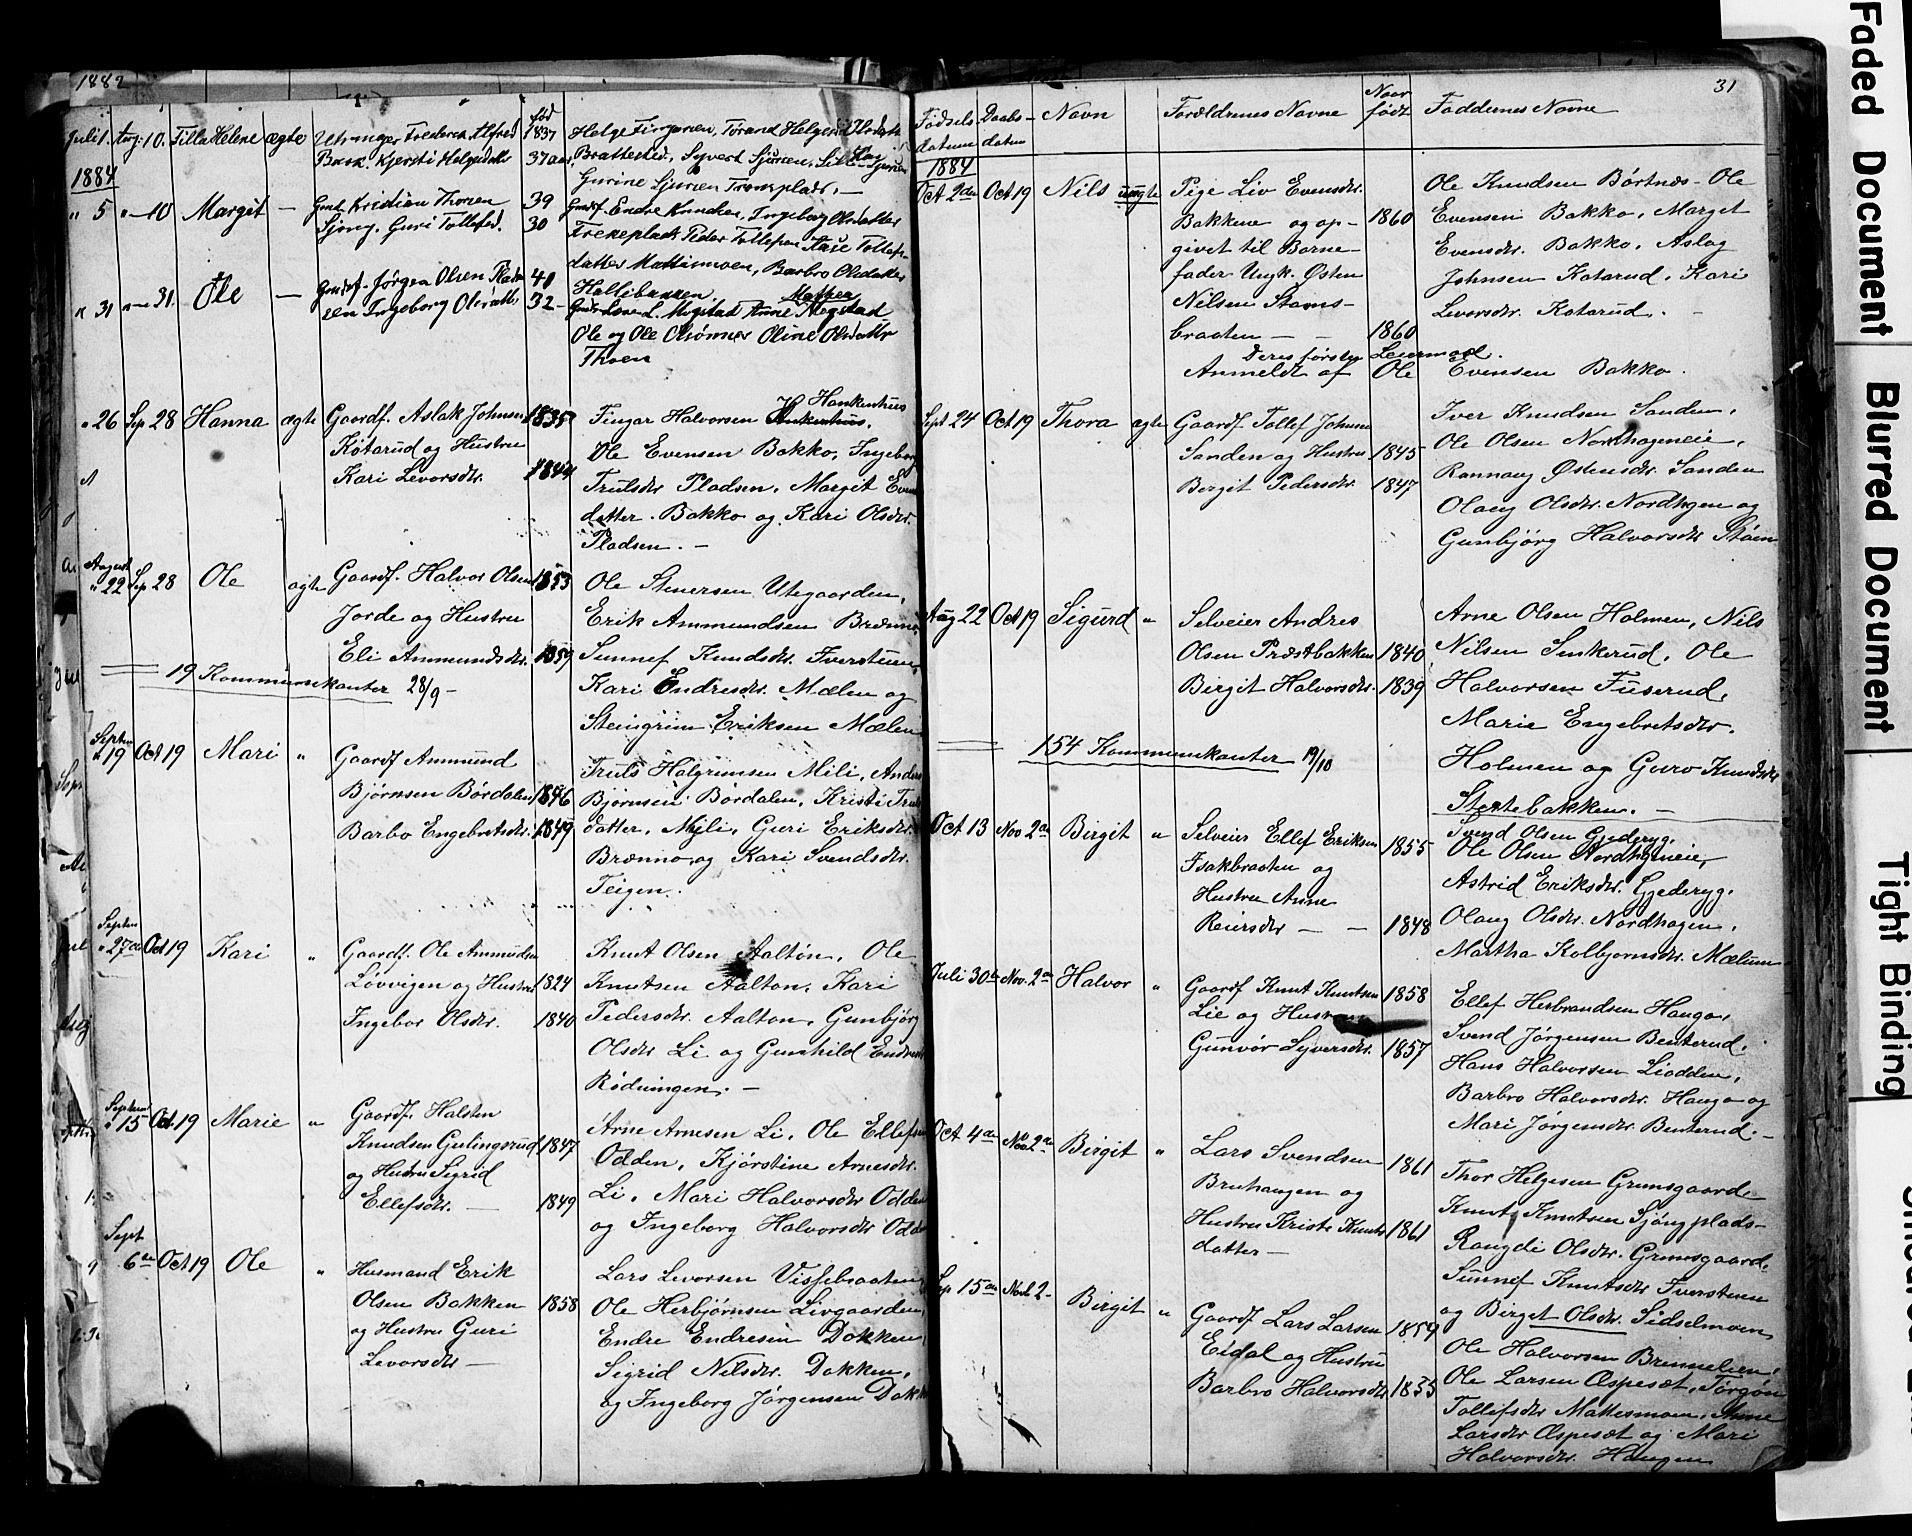 1882
Juli 1. Aug. 10. Tilla Helene ægte Frederik Alfred født 1837
Kjersti Helgesdtr 37 aar
Helge Finsen, Torand Helgesd.
Brattested, Syvert Sjursen,
Gurine Sjursen
1884
" 5 " 10 Margit — Kridian Thoren 39
Sjong. Guri Tollefsd. 30
Endre Knudsen, Ingeborg Olsdatter
Peder Tollefsen Aase Tollefs
datter Mattismoen, Barbro Olsdatter
Hollibraaten.
" 31 " 31. Ole — Gaardf. Jørgen Olsen 40
Ingeborg Olsdattr. 32 —
Mother
Anne Megstad
Ole og Ole Olsønner Oline Olsdattr
Thoen
" 26 Sep 28 Hanna ægte Gaardf. Aslak Johnsen 1835
Køtarud og Hustru
Kari Levorsdr. 1844
Hankenhus
Fingar Halvorsen
Ole Evensen Bakko, Ingeborg
Trulsdr Pladsen, Margit Evens
datter Bakko og Kari Olsdr.
Pladsen. —
August
" 22 Sep 28 Ole ægte Gaardf. Halvor Olsen 1853
Jorde og Hustru
Eli Ammundsdr. 1859
Ole Stenersen Utegaarden,
Erik Ammundsen Brænno,
Sunnef Knudsdr. Iverstuen,
Kari Endresdr. Mælen og
Steingrim Eriksen Mælen
19 Kommunikanter 28/9 —
Septem
" 19 Oct 19 Mari " Gaardf Ammund
Bjørnsen Børdalen 1846
Barbo Engebretsdr. 1849
Truls Halgrimsen Mili, Anders
Bjørnsen Børdalen, Kristi Truls
datter, Myli, Guri Eriksdr.
Brænno, og Kari Svendsdr.
Teigen.
Septem
" 27de Oct 19 Kari " Gaardf. Ole Ammundsen
Løvvigen og Hustru 1824
Ingebor Olsdr. 1840
Knut Olsen Aalton, Ole
Knutsen Aalton, Kari
Pedersdr. Aalton, Gunbjørg
Olsdr Li og Gunhild Endresd
Rødningen. —
September
" 15 Oct. 19 Marie " Gaardf. Halsten
Knudsen Gulingsrud 1847
og Hustru Sigrid
Ellefsdr. — 1849
Arne Arnesen Li, Ole Ellefsen
Odden, Kjørstine Arnesdr.
Li, Mari Halvorsdr Odden
og Ingeborg Halvorsdr Odden
Sept
6te Oct 19 Ole " Husmand Erik
Olsen Bakken 1858
og Hustru Guri
Levorsdr —
Lars Levorsen Vissebraaten
Ole Herbjørnsen Livgaarden,
Endre Endresen Dokken,
Sigrid Nilsdr. Dokken,
og Ingeborg Jørgensen Dokken
31
Fødsels datum Daabs- datum Navn Forældrenes Navne Naar født Faddernes Navne
1884
Oct 2den Oct 19 Nils uægte Pige Liv Evensdr.
Bakkene og op- 1860
givet til Barne-
fader Ungk. Østen
Nilsen Stavns-
braaten — — 1860
Deres første Leiermaal.
Anmeldt af Ole Evensen Bakko.
Ole Knudsen Børtnæs - Ole
Evensen Bakko, Marget
Evensdr. Bakko, Aslag
Johnsen Kotarud, Kari
Levorsdr. Kotarud. —
Sept 24 Oct 19 Thora ægte Gaardf Tollef Johnsen
Sanden og Hustru 1845
Bergit Pedersdr. 1847
Iver Knudsen Sanden,
Ole Olsen Nordhageneie,
Rannaug Østensdr. Sanden
Olaug Olsdr. Nordhagen og
Gunbjørg Halvorsdr Støen
Aug 22 Oct 19 Sigurd " Selveier Andres
Olsen Præstbakken 1840
Birgit Halvorsdr. 1839
Arne Olsen Holmen, Nils
Nilsen Sinkerud, Ole
Halvorsen Fuserud,
Marie Engebretsdr.
Holmen og Guro Knudsdr
Stentebakken. —
154 Kommunikanter 19/10
Oct 13 Nov 2den Birgit " Selveier Ellef Eriksen 1855
Isakbraaten og
Hustru Anne
Reiersdr — — 1848
Svend Olsen Gjederyg.
Ole Olsen Nordhgneie,
Astrid Eriksdr. Gjederyg.
Olaug Olsdr. Nordhagen,
Martha Kolbjørnsdr. Mælum
Juli 30te Nov. 2den Halvor " Gaardf Knut Knutsen 1858
Lie og Hustru
Gunvor Syversdr. 1857
Ellef Herbrandsen Haugo,
Svend Jørgensen Benterud.
Hans Halvorsen Liodden,
Barbro Halvorsdr. Haugo og
Mari Jørgensdr. Benterud. —
Oct 4de Nov 2den Birgit " Lars Svendsen 1861
Bruhaugen og
Hustru Kristi Knuts 1861
datter —
Thor Helgesen Grimsgaard
Knut Knutsen Sjongplads —
Rangdi Olsdr. Grimsgaard.
Sunnef Knutsdr. Iverstuen
og Birget Olsdr. Sidselmoen
Sep 15de Nov 2 — Birgit " Gaardf Lars Larsen 1859
Eidal og Hustru
Barbro Halvorsdr 1855
Ole Halvorsen Brennelien,
Ole Larsen Æspesæt, Torgon
Tollefsdr Mattesmoen, Anne
Larsdr Æspesæt og Mari
Halvorsdr. Haugen
Faded Document
Blurred Document
Tight Binding